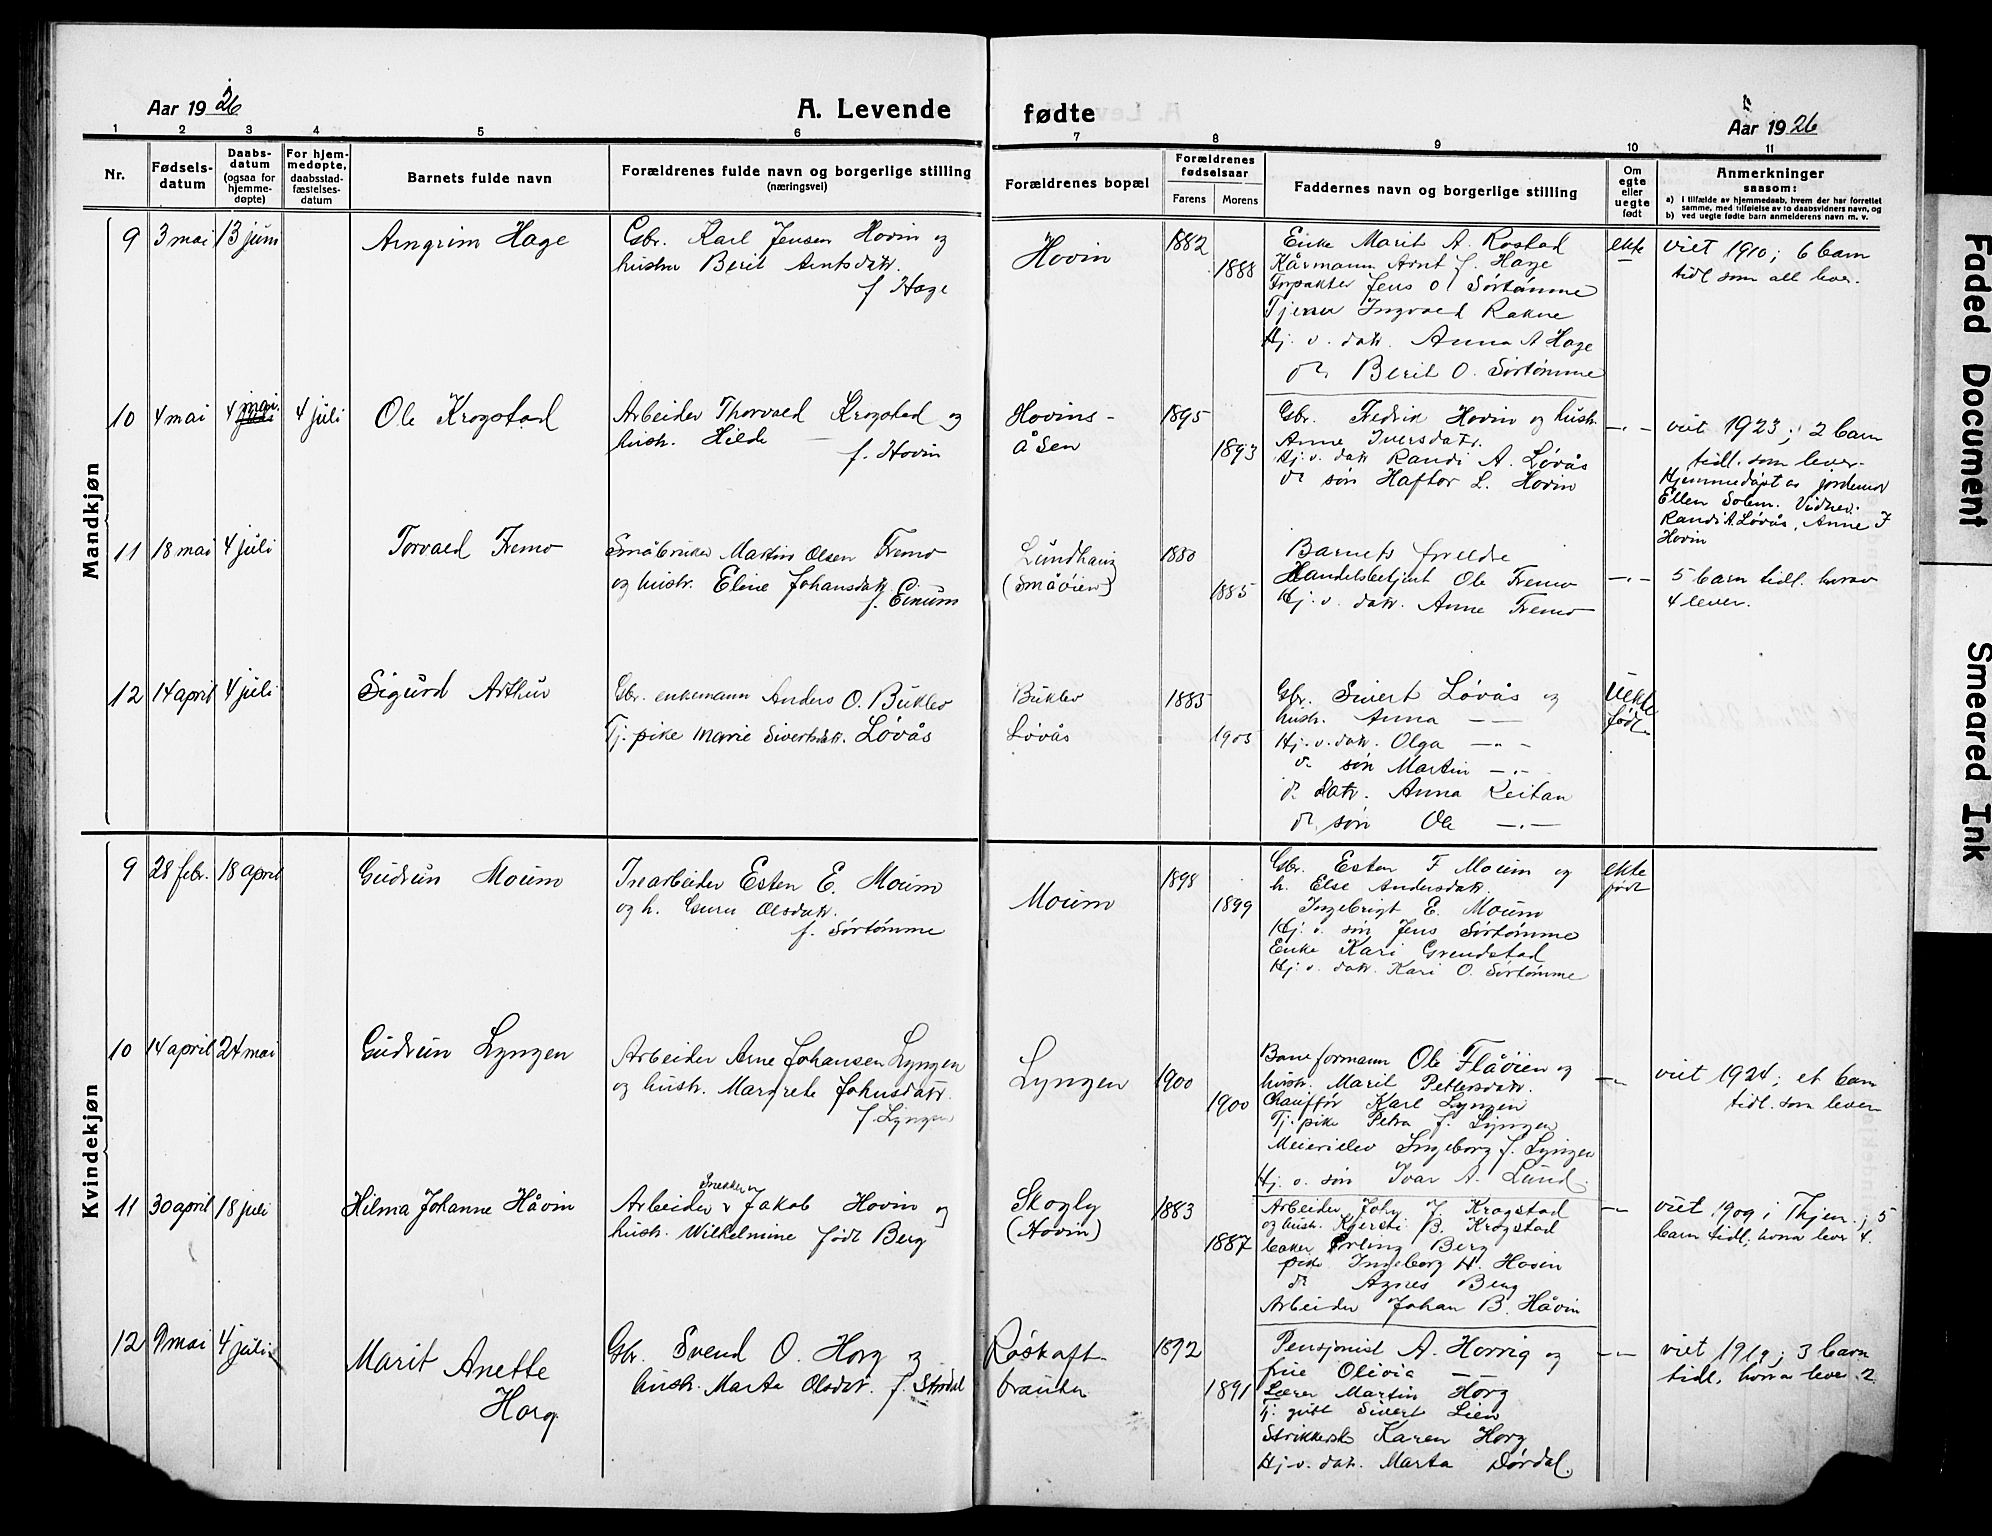 Aar 1926
A. Levende
fødte
Aar 1926
1 2 3 4 5 6 7 8 9 10 11
Nr.
Fødsels-
datum
Daabs-
datum
(ogsaa for
hjemme-
døpte)
For hjem-
medøpte,
daabsstad-
fæstelses-
datum
Barnets fulde navn
Forældrenes fulde navn og borgerlige stilling
(næringsvei)
Forældrenes bopæl
Forældrenes
fødselsaar
Farens Morens
Faddernes navn og borgerlige stilling
Om
egte
eller
uegte
født
Anmerkninger
saasom:
a) I tilfælde av hjemmedaab, hvem der har forrettet
samme, med tilføielse av to daabsvidners navn, og
b) ved uegte fødte barn anmelderens navn m. v.
Mandkjøn
9 3 mai 13 juni
Arngrim Hage
Gbr. Karl Jensen Hovin og
hustru Berit Arntsdatr.
f. Hage
Hovin
1882
1888
Enke Marit A. Rostad
Kårmann Arnt J. Hage
Forpakter Jens O. Sørtømme
Tjener Ingvald Rakne
Hj. v. datr. Anna A Hage
do Berit O. Sørtømme
ekte
viet 1910; 6 barn
tidl som all lever.
10 4 mai 4 mai 4 juli
Ole Krogstad
Arbeider Thorvald Krogstad og
hustr. Hilde —
f. Hovin
Hovins-
åsen
1895
1893
Gbr. Fredrik Hovin og hustr.
Anne Iversdatr.
Hj. v. datr Randi A. Løvås
do søn Haftor L. Hovin
—"—
viet 1923; 2 barn
tidl. som lever.
Hjemmedøpt av jordemor
Ellen Solem. Vidner:
Randi A. Løvås, Anne I
Hovin
11 18 mai 4 juli
Torvald Fremo
Småbruker Martin Olsen Fremo
og hustr. Eline Johansdatr.
f. Enum
Lundhaug
(Småøien)
1880
1885
Barnets foreldre
Handelsbetjent Ole Fremo
Hj. v. datr. Anne Fremo
—"—
5 barn tidl. horav
4 lever.
12 14 april 4 juli
Sigurd Arthur
Gbr. enkemann Anders O. Buklev
Tj. pike Marie Sivertsdatr. Løvås
Buklev
Løvås
1885
1905
Gbr. Sivert Løvås og
hustr. Anna — —
Hj. v. datr. Olga — " —
do søn Martin — " —
do datr. Anna Reitan
do søn Ole — " —
Uekte
født
Kvindekjøn
9 28 febr. 18 april
Gudrun Moum
Irearbeider Esten E. Moum
og h. Guru Olsdatr.
f. Sørtømme
Moum
1898
1899
Gbr. Esten F Moum og
h. Else Andersdatr.
Ingebrigt E. Moum
Hj. v. søn Jens Sørtømme
Enke Kari Grendstad
Hj. v. datr. Kari O. Sørtømme
ekte
født
10 14 april 24 mai
Gudrun Lyngen
Arbeider Arne Johansen Lyngen
og hustr. Margrete Johnsdatr.
f. Lyngen
Lyngen
1900
1900
Baneformann Ole Flåøien og
hustr. Marit Pettersdatr.
Chauffør Karl Lyngen
Tj. pike Petra J. Lyngen
Meierielev Ingeborg J. Lyngen
Hj. v. søn Ivar A. Lund.
—"—
viet 1924; et barn
tidl. som lever
11 30 april 18 juli
Hilma Johanne Håvin
Snekker
Arbeider Jakob Hovin og
hustr. Wilhelmine født Berg
Skogly
(Hovin)
1883
1887
Arbeider John J Krogstad
og hustr. Kjersti B. Krogstad
baker Erling Berg
pike Ingeborg H. Hovin
do Agnes Berg
Arbeider Johan B. Håvin
—"—
viet 1909 i Thjem; 5
barn tidl; horav lever 4.
12 9 mai 4 juli
Marit Anette
Horg
Gbr. Svend O. Horg og
hustr. Marta Olsdtr. f. Stordal
Røskaft-
brauten
1892
1891
Pensjonist A. Horrig og
frue Olivia — —
Lærer Martin Horg
Tj. gutt Sivert Lien
Strikkersk Karen Horg
Hj. v. datr. Marta Dørdal.
—"—
viet 1919; 3 barn
tidl. horav lever 2
Faded Document
Smeared Ink